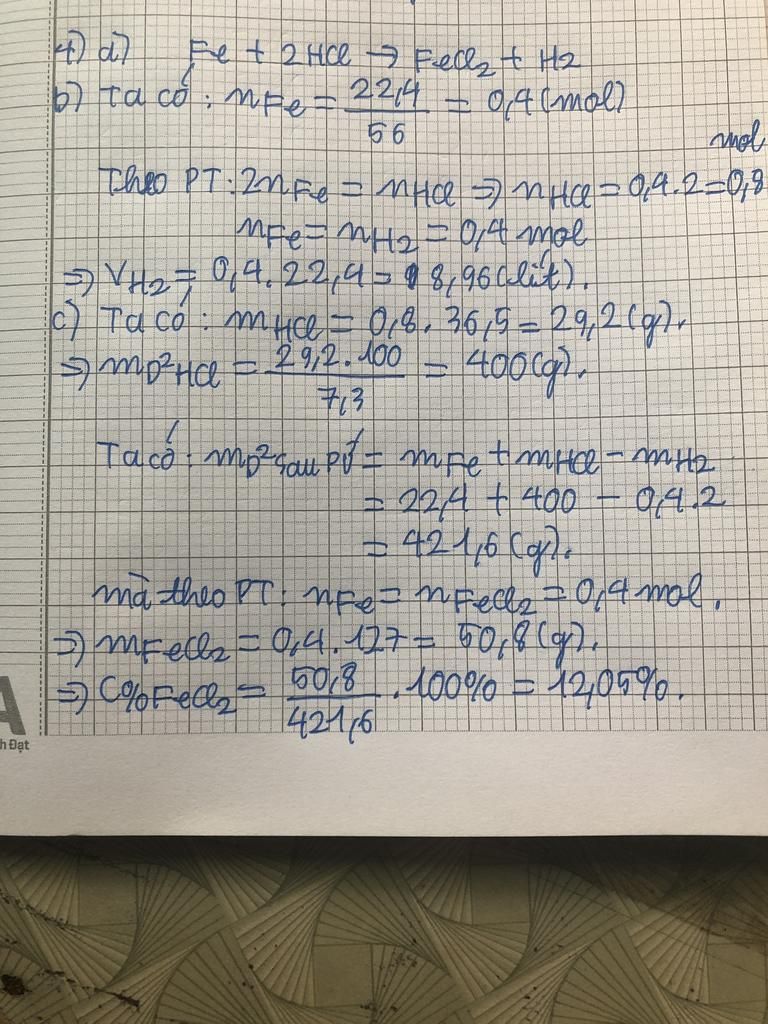 4) a) Fe + 2HCl → FeCl2 + H2
b) Ta có: nFe = 22,4/56 = 0,4 (mol)
mol
Theo PT: 2nFe = nHCl ⇒ nHCl = 0,4.2 = 0,8
nFe = nH2 = 0,4 mol
⇒ VH2 = 0,4.22,4 = 8,96 (lít).
c) Ta có: mHCl = 0,8.36,5 = 29,2 (g).
⇒ mD²HCl = 29,2.100/7,3 = 400 (g).
Ta có: mD² sau PỨ = mFe + mHCl - mH2
= 22,4 + 400 - 0,4.2
= 421,6 (g).
mà theo PT: nFe = nFeCl2 = 0,4 mol.
⇒ mFeCl2 = 0,4.127 = 50,8 (g).
⇒ C%FeCl2 = 50,8/421,6 .100% = 12,05%.
h Đạt